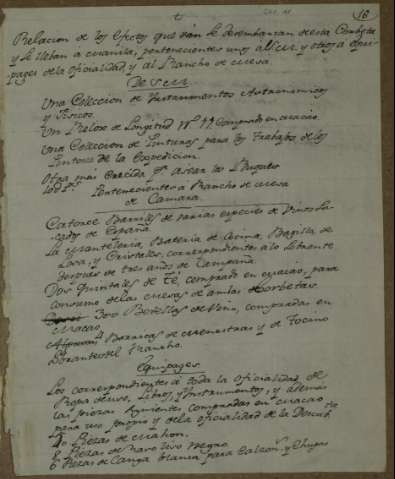 18
Relacion de los Efectos que van se desembarcan de esta Corbeta
y se llevan a manila, pertenecientes unos al Rey y otros a equi-
pages de la oficialidad y al Rancho de mesa.
De S. M.
Una Coleccion de Instrumentos Astronomicos
y Fisicos
Un Relox de Longitud Nº 11 Comprado en macao.
Una Coleccion de Pinturas para los Trabajos de los
Pintores de la Expedicion.
Otra mas crecida
Pertenecientes a Rancho de mesa
de Camara.
Catorce Barriles de varias especies de Vinos Sa-
cados de España
La Mantelería, Batería de Cocina, Bagilla de
Loza, y Cristales, correspondientes a lo
de tres años de Campaña.
Dos Quintales de Té, comprado en macao, para
consumo de las mesas de ambas Corbetas
300 Botellas de Vino, compradas en
macao
Barricas de menestras y de Tocino
Rancho.
Equipages
Los correspondientes a toda la oficialidad de
Ropa de uso, Libros, y Instrumentos, y además
las piezas siguientes compradas en macao
para uso propio y de la oficialidad de la Descubta
Piezas de mahon.
6 Piezas de Raso liso negro
6 Piezas de Canga blanca para Calzon y Chupas